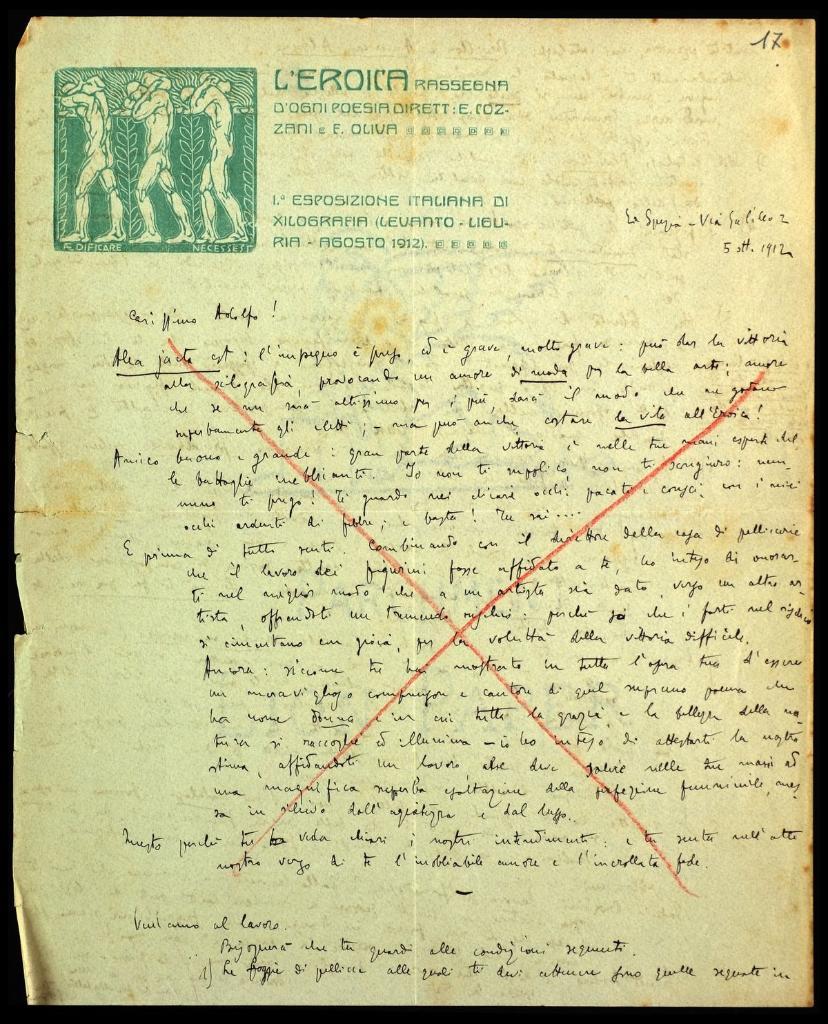 17
L'EROICA RASSEGNA
D'OGNI POESIA DIRETT: E. COZ-
ZANI e F. OLIVA
I.ª ESPOSIZIONE ITALIANA DI
XILOGRAFIA (LEVANTO - LIGU-
RIA - AGOSTO 1912).
ÆDIFICARE NECESSE EST
La Spezia - Via Galileo 2
5 ott. 1912
Carissimo Adolfo!
Alea jacta est: l'impegno è preso, ed è grave, molto grave: può dar la vittoria
alla xilografia, provocando un amore di moda per la bella arte; amore
che se non sarà altissimo per i più, darà il modo che ne godano
superbamente gli eletti; - ma può anche costare la vita all'Eroica!
Amico buono e grande: gran parte della vittoria è nelle tue mani esperte del
le battaglie inebbrianti. Io non ti supplico, non ti scongiuro: nem-
meno ti prego! Ti guardo nei chiari occhi pacati e consci, con i miei
occhi ardenti di febbre; e basta! Tu sai....
E prima di tutto senti. Combinando con il direttore della casa di pelliccerie
che il lavoro dei figurini fosse affidato a te, ho inteso di onorar-
ti nel miglior modo che a un artista sia dato, verso un altro ar-
tista, offrendoti un tremendo rischio: perchè so che i forti nel rischio
si cimentano con gioia, per la voluttà della vittoria difficile.
Ancora: siccome tu hai mostrato in tutta l'opera tua d'essere
un meraviglioso comprensore e cantore di quel supremo poema che
ha nome donna e in cui tutta la grazia e la bellezza della na-
tura si raccoglie ed illumina - io ho inteso di attestarti la nostra
stima, affidandoti un lavoro che deve salire nelle tue mani ad
una magnifica superba esaltazione della perfezione femminile, mes-
sa in rilievo dall'agiatezza e dal lusso.
Questo perchè tu veda chiari i nostri intendimenti: e tu senta nell'atto
nostro verso di te l'inobliabile amore e l'incrollata fede.
Veniamo al lavoro.
Bisognerà che tu guardi alle condizioni seguenti.
1) Le foggie di pelliccia alle quali ti devi attenere sono quelle segnate in